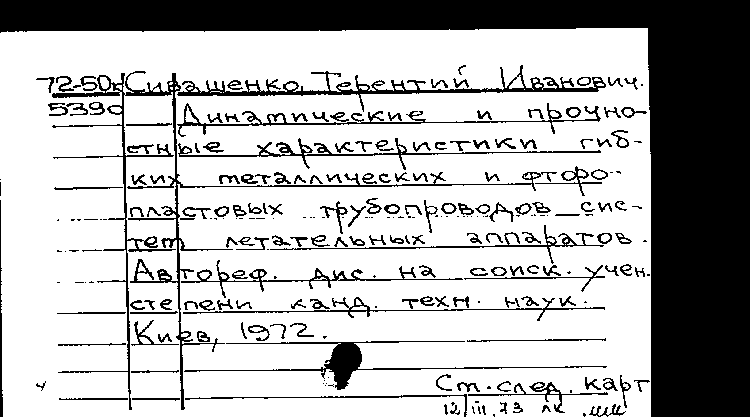 72-50к Сивашенко, Терентий Иванович.
5390 Динамические и прочно-
стные характеристики гиб-
ких металлических и фторо-
пластовых трубопроводов сис-
тем летательных аппаратов.
Автореф. дис. на соиск. учен.
степени канд. техн. наук.
Киев, 1972.
Ст. след. карт
12/III.73 лк